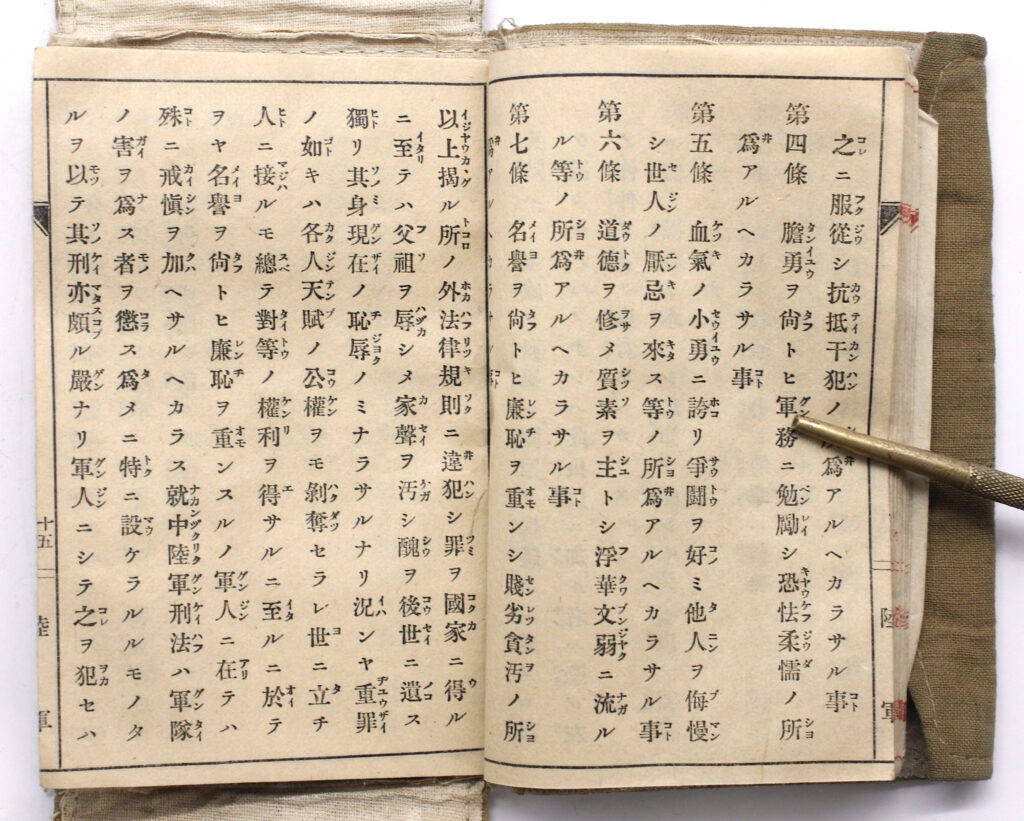 之ニ服從シ抗抵干犯ノ爲アルヘカラサル事
第四條 膽勇ヲ尙トヒ軍務ニ勉勵シ恐怯柔懦ノ所
爲アルヘカラサル事
第五條 血氣ノ小勇ニ誇リ爭鬪ヲ好ミ他人ヲ侮慢
シ世人ノ厭忌ヲ來ス等ノ所爲アルヘカラサル事
第六條 道德ヲ修メ質素ヲ主トシ浮華文弱ニ流ル
ル等ノ所爲アルヘカラサル事
第七條 名譽ヲ尙トヒ廉恥ヲ重ンシ賤劣貪汚ノ所
以上揭ル所ノ外法律規則ニ違犯シ罪ヲ國家ニ得ル
ニ至テハ父祖ヲ辱シメ家聲ヲ汚シ醜ヲ後世ニ遺ス
獨リ其身現在ノ恥辱ノミナラサルナリ況ンヤ重罪
ノ如キハ各人天賦ノ公權ヲモ剝奪セラレ世ニ立チ
人ニ接ルモ總テ對等ノ權利ヲ得サルニ至ルニ於テ
ヲヤ名譽ヲ尙トヒ廉恥ヲ重ンスルノ軍人ニ在テハ
殊ニ戒愼ヲ加ヘサルヘカラス就中陸軍刑法ハ軍隊
ノ害ヲ爲ス者ヲ懲ス爲メニ特ニ設ケラルルモノタ
ルヲ以テ其刑亦頗ル嚴ナリ軍人ニシテ之ヲ犯セハ
十五
陸
軍